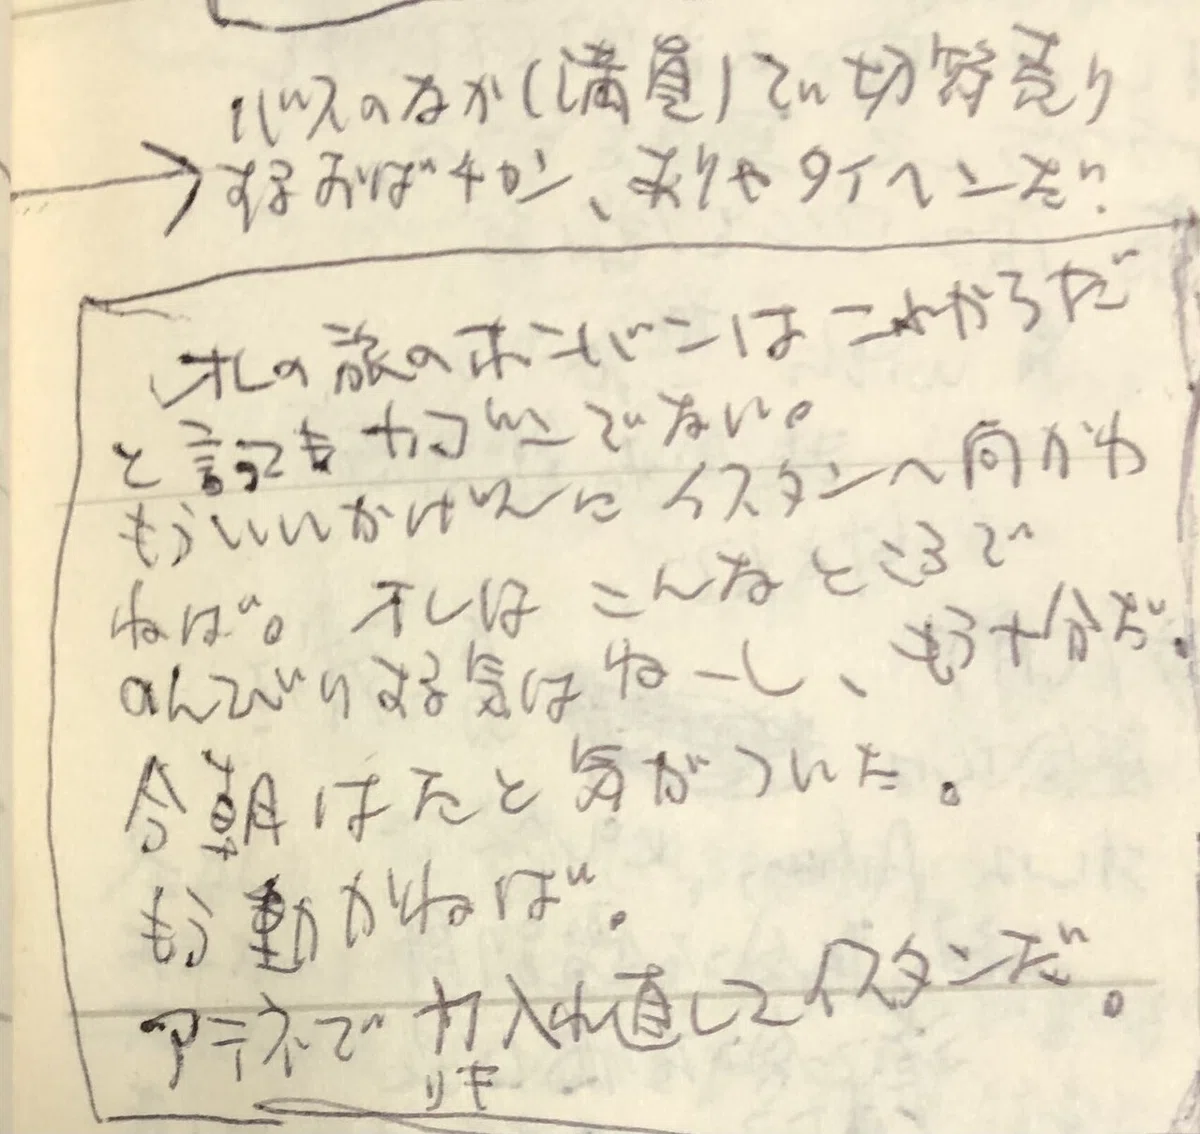 バスのなか(満員)で切符売り
するおばチャン、ありゃタイヘンだ?
オレの旅のホンバンはこれからだ
と言っても カゴンでない。
もういいかげんにイスタンへ向かわ
ねば。オレはこんなところで
のんびりする気はねーし、もう十分だ。
今朝はたと気がついた。
もう動かねば。
アテネで力入れ直してイスタンだ。
リキ